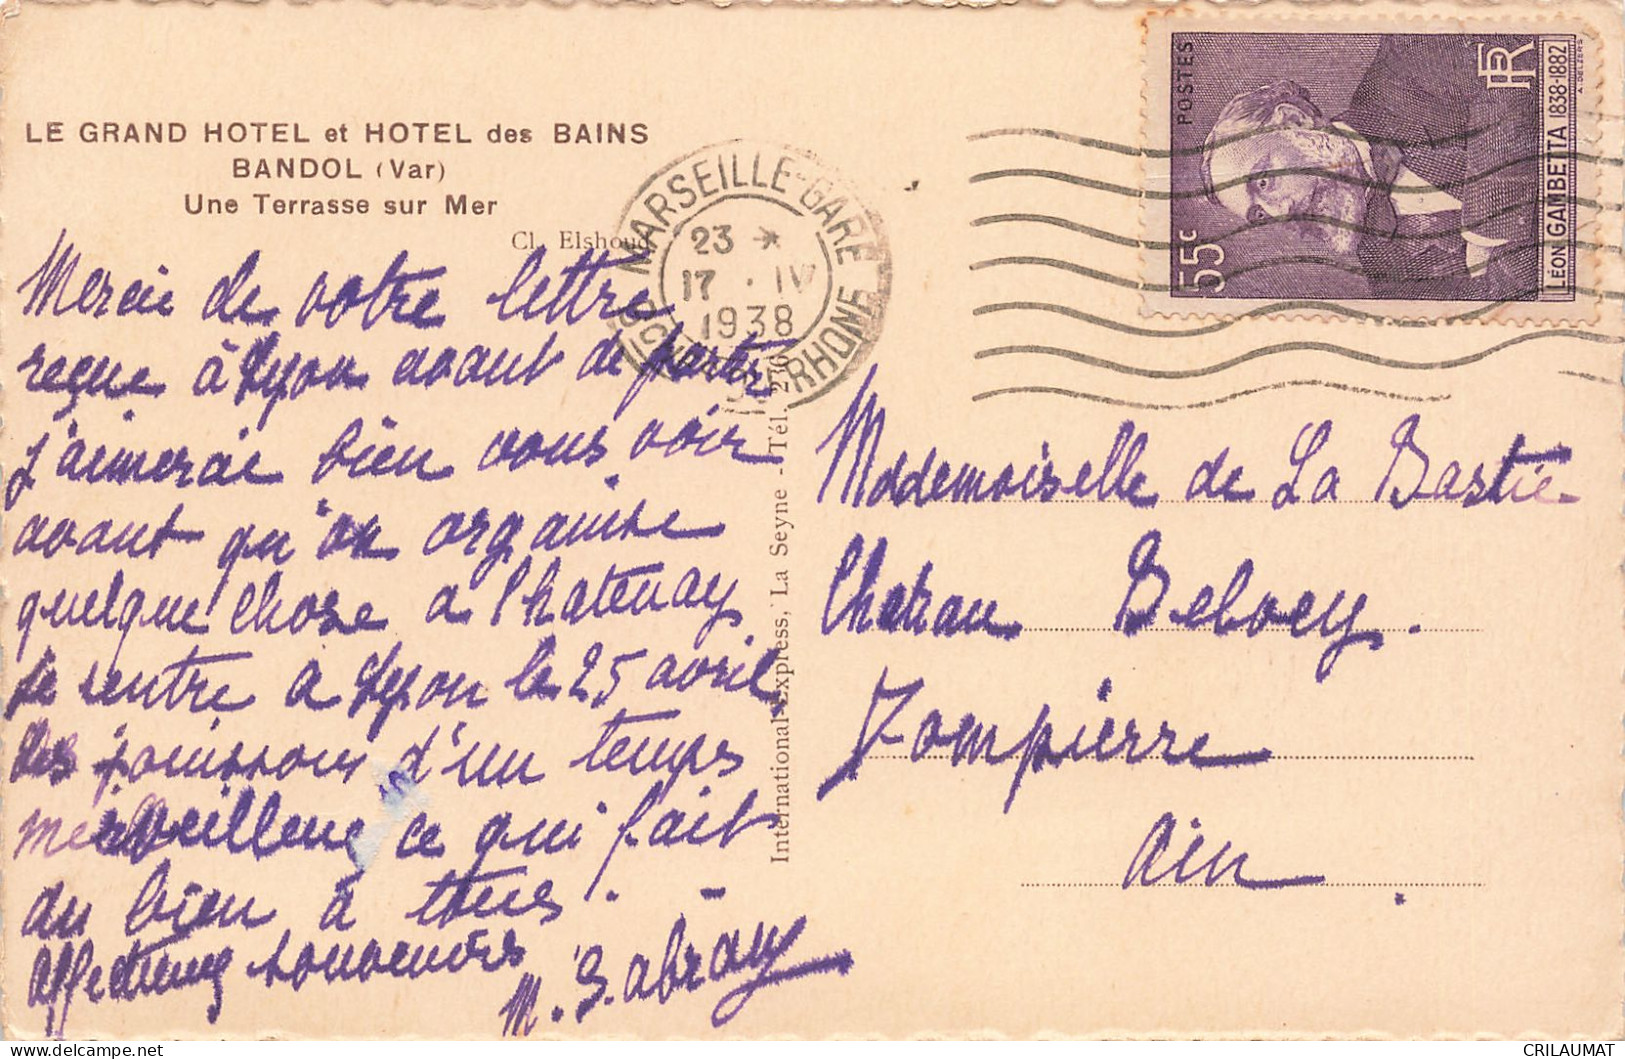 LE GRAND HOTEL et HOTEL des BAINS
BANDOL (Var)
Une Terrasse sur Mer
Cl. Elshoud
Merci de votre lettre
reçue à Lyon avant de partir
J'aimerai bien vous voir
avant qu'on organise
quelque chose a Chatenay
Je rentre a Lyon le 25 avril
jouissons d'un temps
merveilleux ce qui fait
du bien à tous. -
Affectueux souvenirs
M. S.
International Express, La Seyne - Tél. 236
MARSEILLE-GARE
23
17 . IV
1938
BCHES DU RHONE
POSTES
RF
55c
LÉON GAMBETTA 1838-1882
Mademoiselle de La Bastie
Chateau Belvey.
Dompierre
Ain.
CRILAUMAT